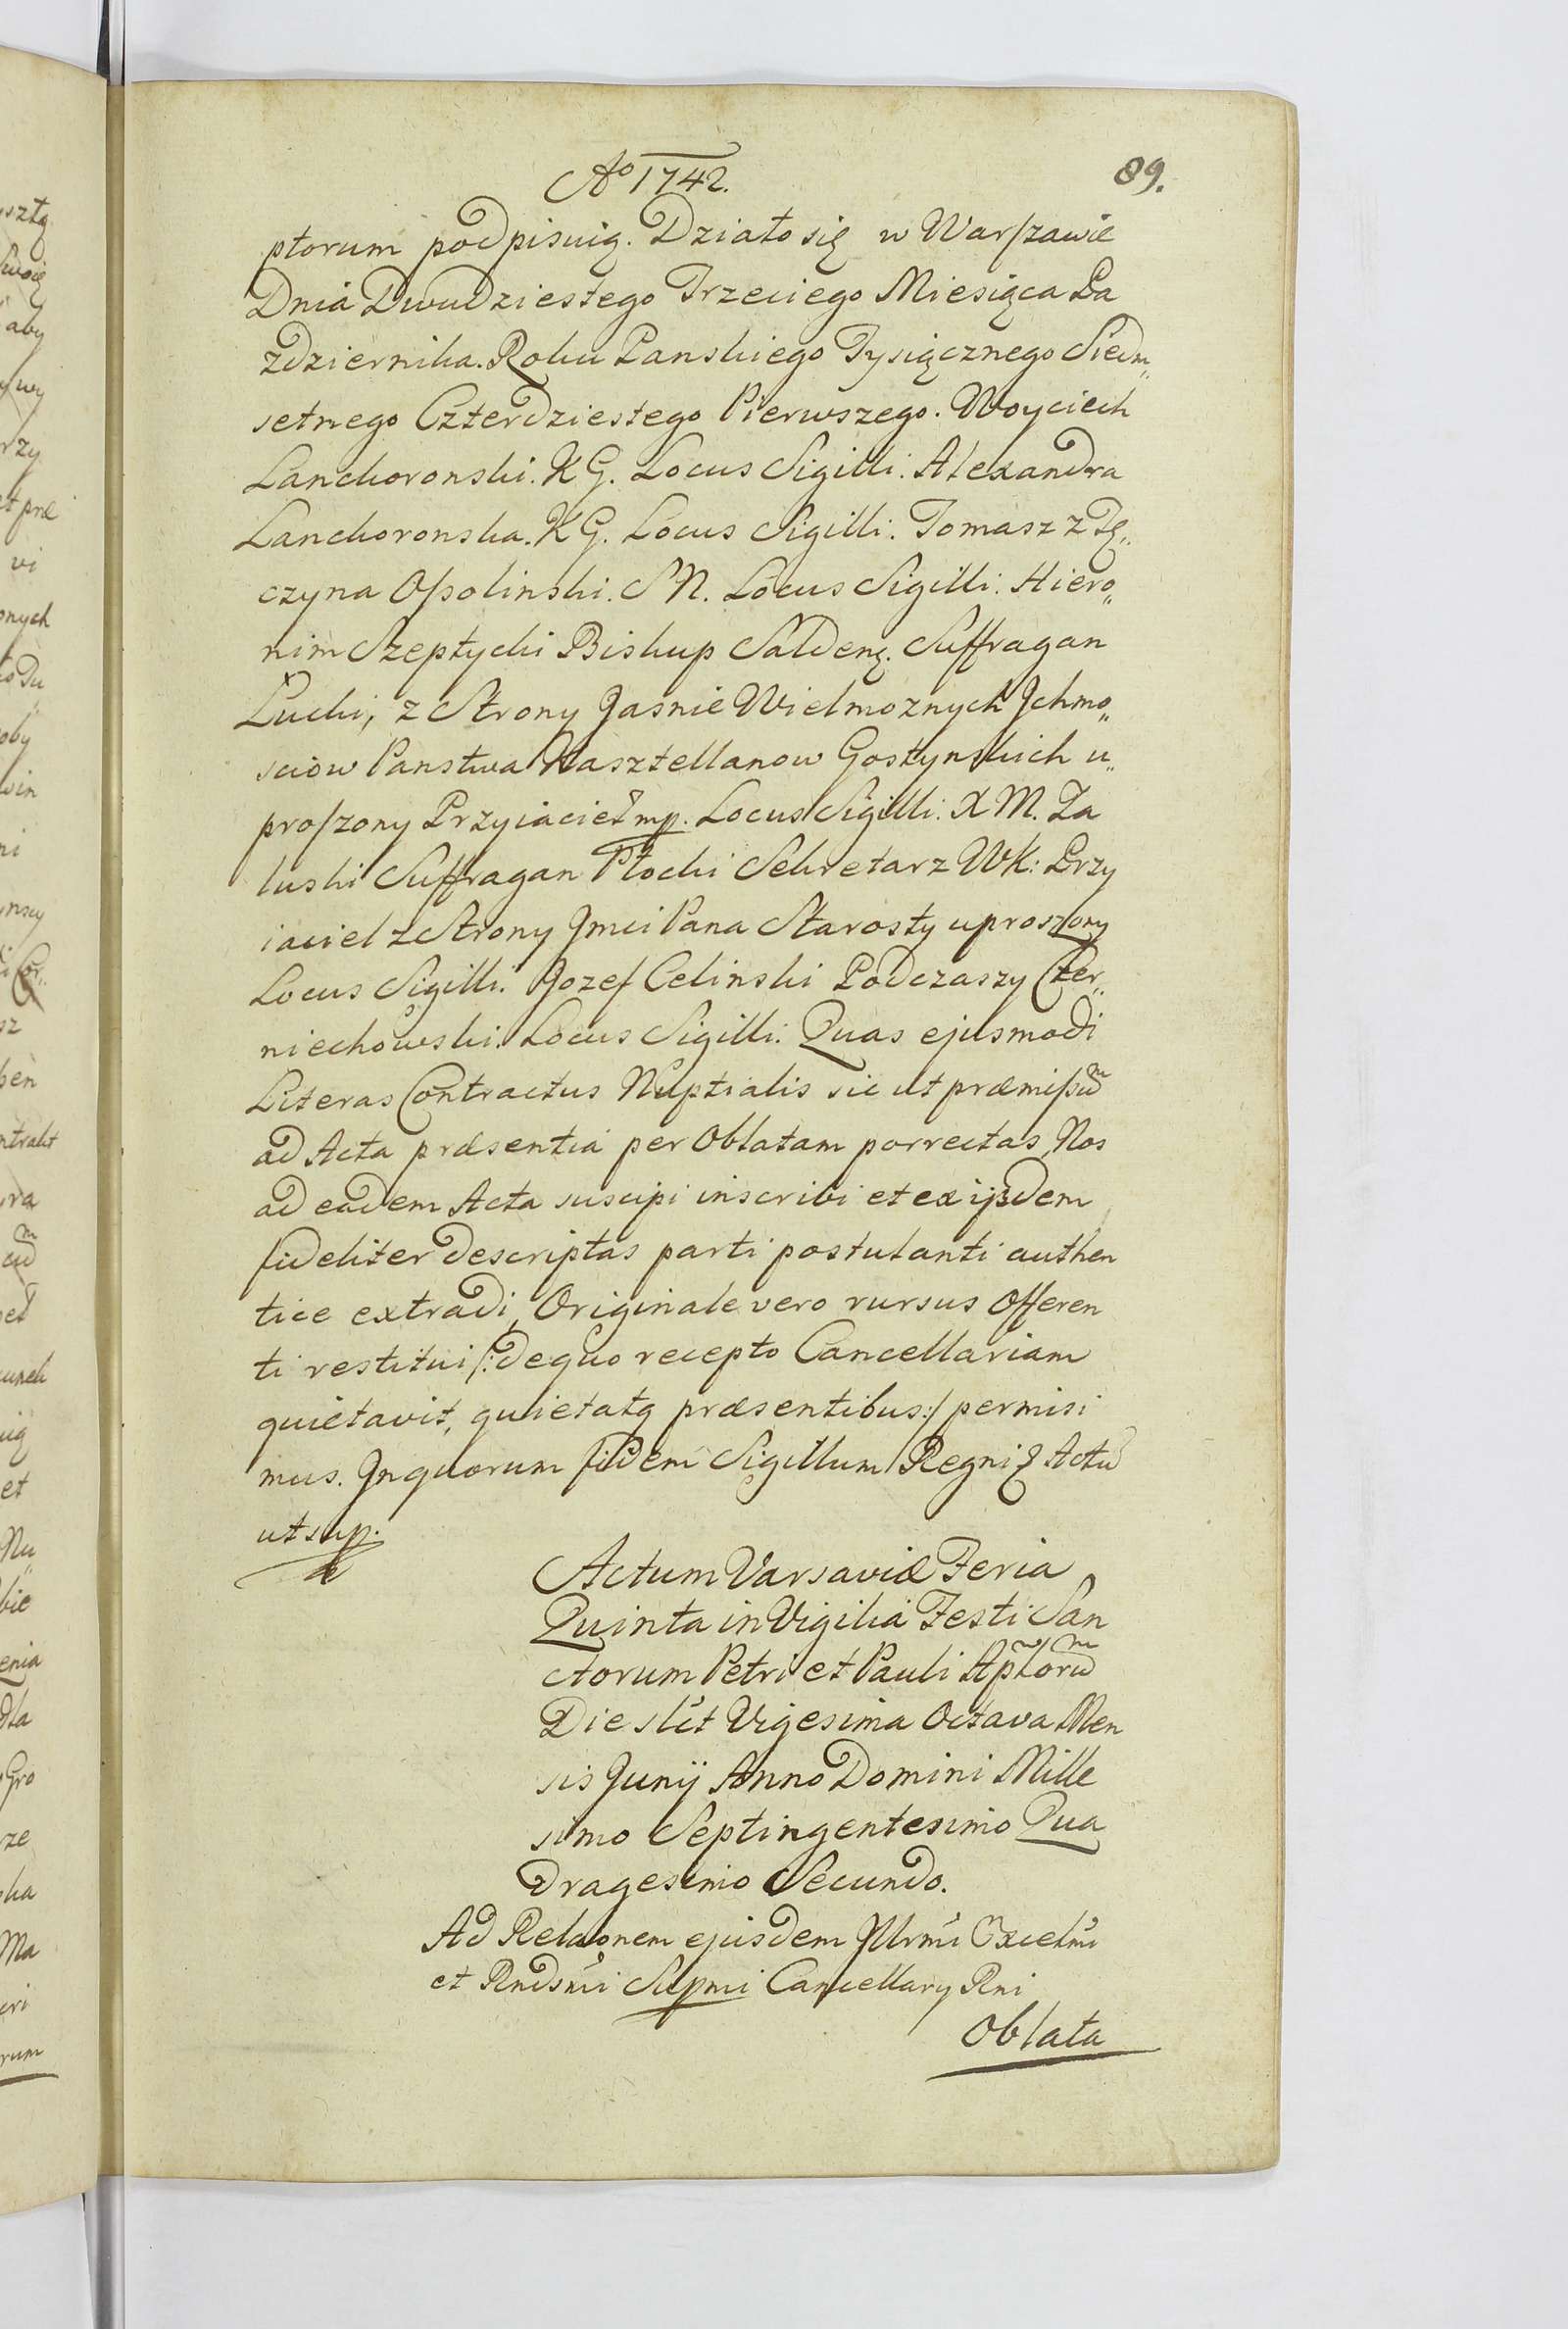 Ao 1742.
89.
ptorum podpisuią. Działo się w Warszawie
Dnia Dwudziestego Trzeciego Miesiąca Pa
zdziernika. Roku Panskiego Tysiącznego Siedm„
setnego Czterdziestego Pierwszego. Woyciech
Lanckoronski. KG. Locus Sigilli. Alexandra
Lanckoronska. KG. Locus Sigilli. Tomasz z Tę„
czyna Ossolinski. SN. Locus Sigilli. Hiero„
nim Szeptycki Biskup Saldeng. Suffragan
Lucki, z Strony Jasnie Wielmoznych Jchmo„
sciow Panstwa Kasztellanow Gostynskich u„
proszony Przyiaciel mp. Locus Sigilli. X M. Za
luski Suffragan Płocki Sekretarz WK: Przy
iaciel z Strony Jmci Pana Starosty uproszony
Locus Sigilli. Jozef Celinski Podczaszy Czer„
niechowski. Locus Sigilli. Quas ejusmodi
Literas Contractus Nuptialis sic ut præmissũ
ad Acta præsentia per Oblatam porrectas, Nos
ad eadem Acta suscipi inscribi et ex ijsdem
fideliter descriptas parti postulanti authen
tice extradi, Originale vero rursus Offeren
ti restitui /: de quo recepto Cancellariam
quietavit, quietatq præsentibus :/ permisi
mus. In quorum fidem Sigillum Regni Actũ
ut sup.
Actum Varsaviæ Feria
Quinta in Vigilia Festi San
ctorum Petri et Pauli Aplorũ
Die slct Vigesima Octava Men
sis Junij Anno Domini Mille
simo Septingentesimo Qua
dragesimo Secundo.
Ad Relaonem ejusdem Jllrmi Excelmi
et Rndsmi Supmi Cancellary Rni
Oblata